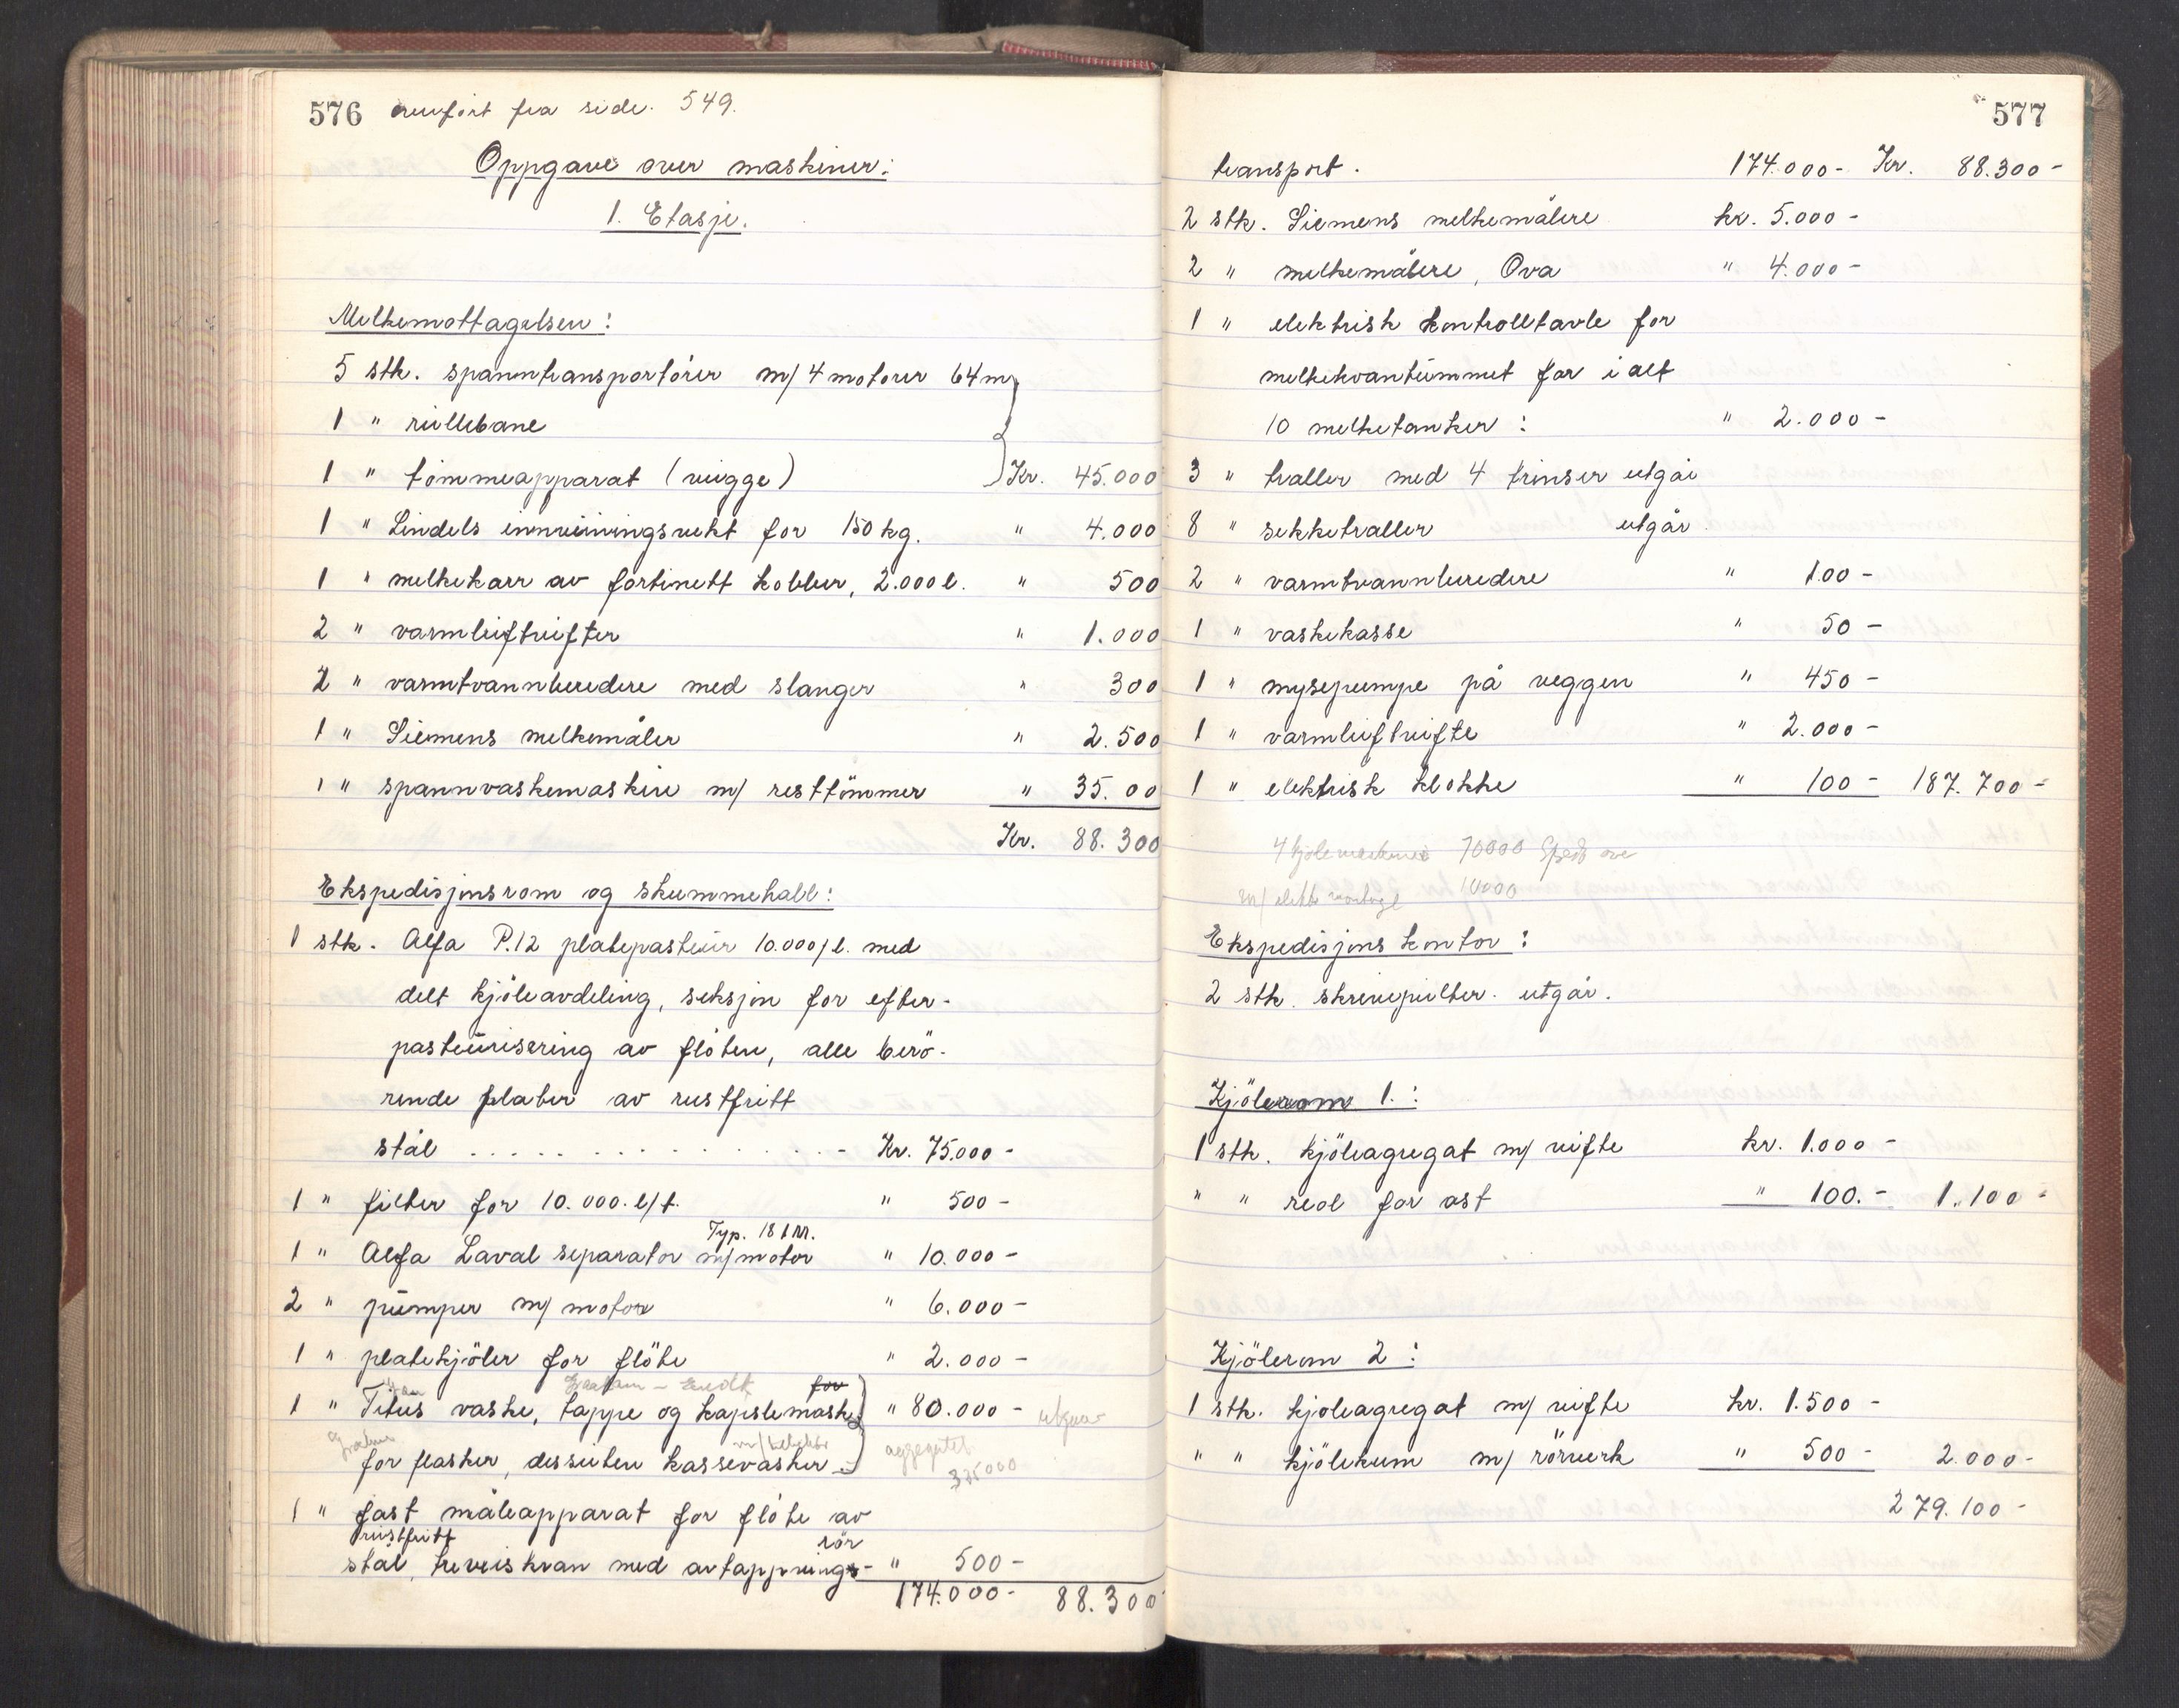 576 fra side. 549.
Oppgave over maskiner:
1. Etasje.
Melkemottagelsen:
5 stk. spanntransportörer m/ 4 motorer 64 m
1 " rullebane
1 " tömmeapparat (vugge) Kr. 45.000
1 " Lindels innveiningsvekt for 150 kg. " 4.000
1 " melkekarr av fortinett kobber, 2.000 l. " 500
2 " varmluftvifter " 1.000
2 " varmtvannberedere med slanger " 300
1 " Siemens melkemåler " 2.500
1 " spannvaskemaskin m/ resttömmer " 35.00
Kr. 88.300
Ekspedisjonsrom og skummehall:
1 stk. Alfa P.12 platepasteur 10.000/l. med
delt kjöleavdeling, seksjon for efter-
pasteurisering av flöten, alle berö-
rende plater av rustfritt
stål . . . . . . . . . . . . . . - Kr. 75.000 -
1 " filter for 10.000. l/t. " 500 -
Typ. 181 M.
1 " Alfa Laval separator m/motor " 10.000 -
2 " pumper m/ motor " 6.000 -
1 " platekjöler for flöte " 2.000 -
for
1 " Titus vaske, tappe og kapslemask. " 80.000 - utgår
for flasker, dessuten kassevasker - aggregatet
325000
1 " fast måleapparat for flöte av
rustfritt rör
stål, treveiskran med avtappnings- " 500 -
174.000 - 88.300
577
transport. 174.000 - Kr. 88.300 -
2 stk. Siemens melkemålere kr. 5.000 -
2 " melkemålere, Ova " 4.000 -
1 " elektrisk kontrolltavle for
melkekvantummet for i alt
10 melketanker : " 2.000 -
3 " traller med 4 trinser utgår
8 " sekketraller utgår
2 " varmtvannberedere " 100 -
1 " vaskekasse " 50 -
1 " mysepumpe på veggen " 450 -
1 " varmluftvifte " 2.000 -
1 " elektrisk klokke " 100 - 187.700 -
4 kjölemaskiner 70000
m/ elektr montage 10000
Ekspedisjons kontor :
2 stk. skrivepulter. utgår.
Kjölerom 1. :
1 stk. kjöleagregat m/ vifte kr. 1.000 -
" " reol for ost " 100. - 1.100 -
Kjölerom 2 :
1 stk. kjöleagregat m/ vifte kr. 1.500 -
" " kjölekum m/ rörverk " 500 - 2.000 -
279.100 -